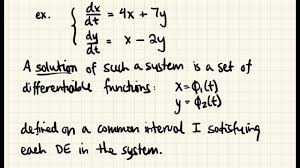 ex. { dx/dt = 4x + 7y
dy/dt = x - 2y
A solution of such a system is a set of
differentiable functions: x = ϕ₁(t)
y = ϕ₂(t)
defined on a common interval I satisfying
each DE in the system.